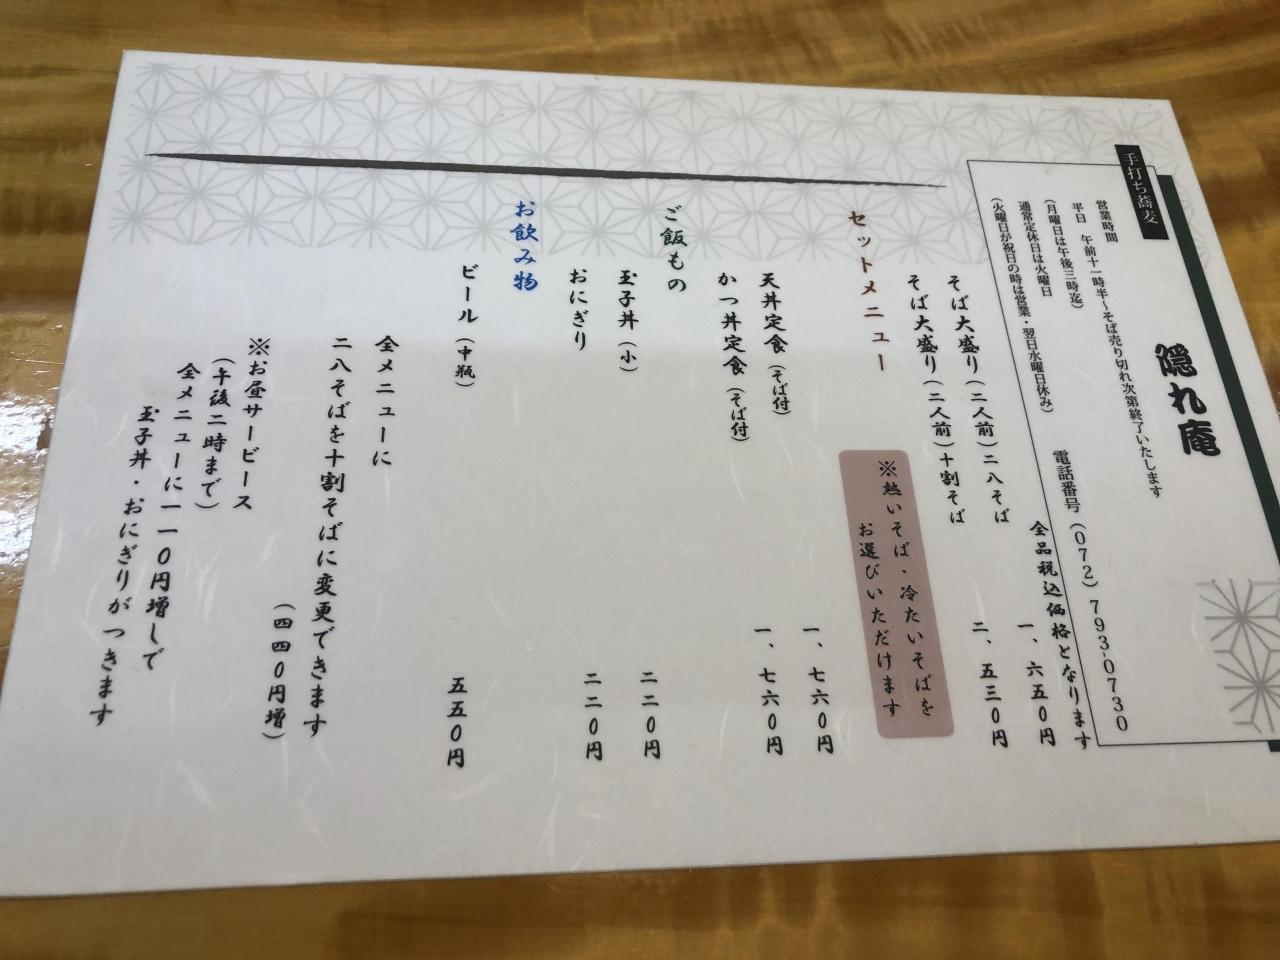 手打ち蕎麦
隠れ庵
営業時間
平日　午前十一時半～そば売り切れ次第終了いたします
(月曜日は午後三時迄)
通常定休日は火曜日
(火曜日が祝日の時は営業・翌日水曜日休み)
電話番号(072)793-0730
全品税込価格となります
そば大盛り(二人前)二八そば　一、六五〇円
そば大盛り(二人前)十割そば　二、五三〇円
セットメニュー
※熱いそば・冷たいそばを
お選びいただけます
天丼定食(そば付)　一、七六〇円
かつ丼定食(そば付)　一、七六〇円
ご飯もの
玉子丼(小)　二二〇円
おにぎり　二二〇円
お飲み物
ビール(中瓶)　五五〇円
全メニューに
二八そばを十割そばに変更できます
(四四〇円増)
※お昼サービース
(午後二時まで)
全メニューに一一〇円増しで
玉子丼・おにぎりがつきます